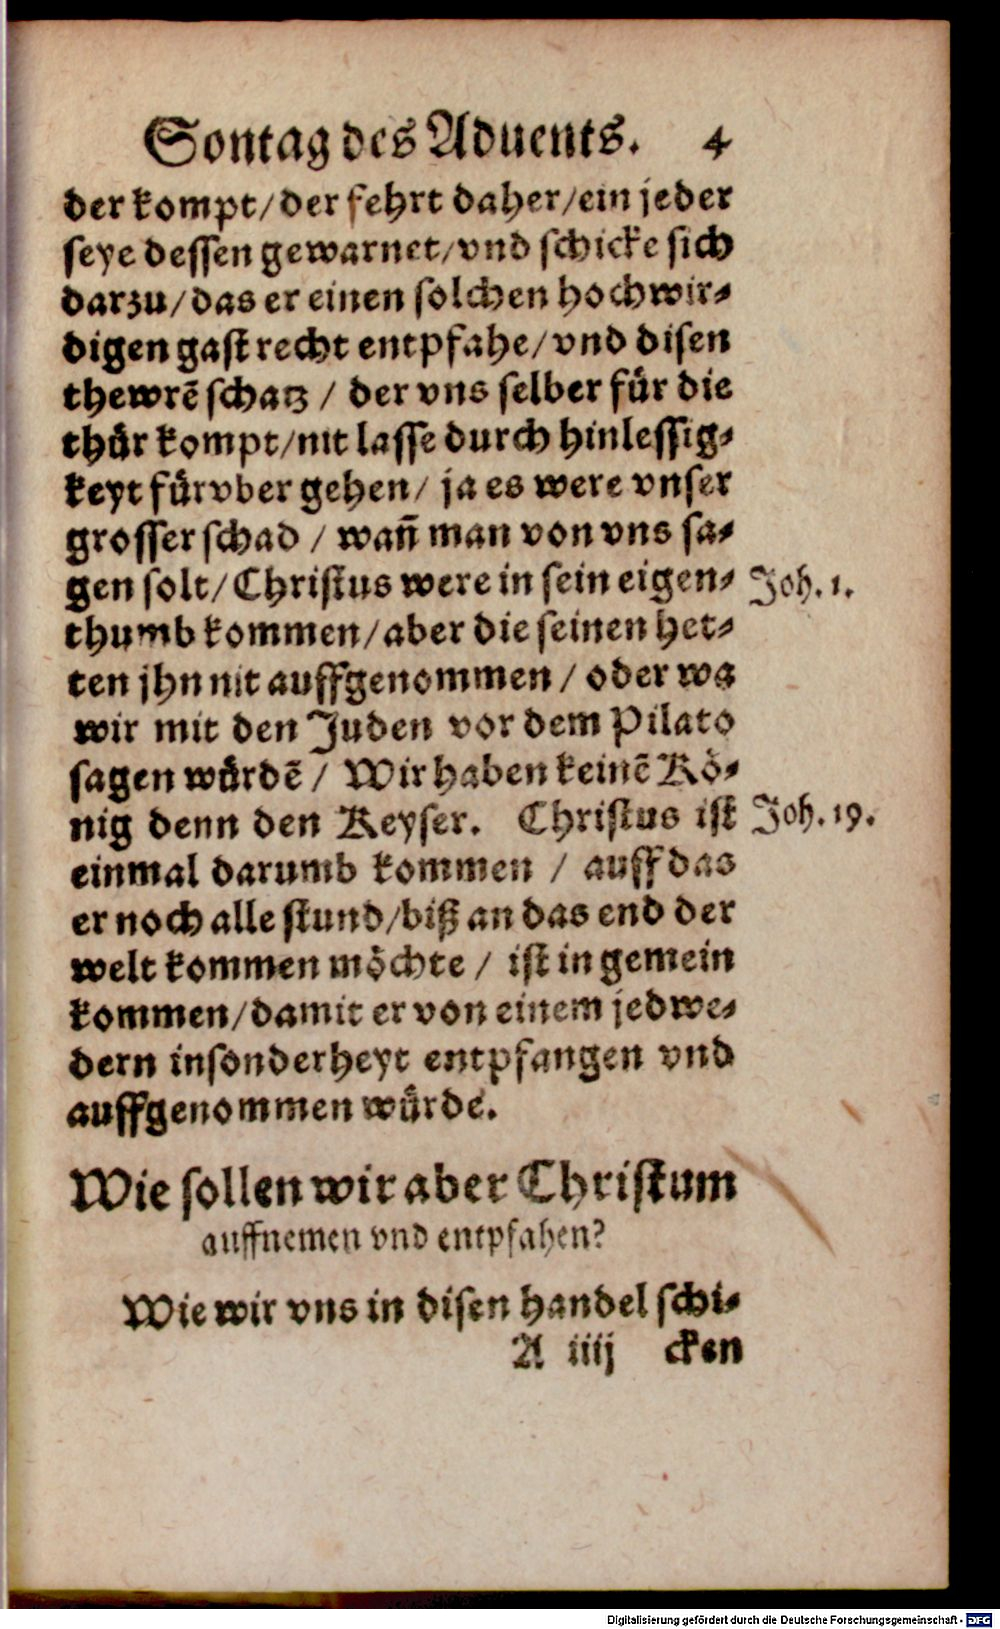 Sontag des Aduents. 4
der kompt/der fehrt daher/ein jeder
seye dessen gewarnet/vnd schicke sich
darzu/das er einen solchen hochwir-
digen gast recht entpfahe/vnd disen
thewrē schatz / der vns selber für die
thür kompt/nit lasse durch hinlessig-
keyt fürvber gehen/ ja es were vnser
grosser schad / wañ man von vns sa-
gen solt/Christus were in sein eigen- Joh. 1.
thumb kommen/aber die seinen het-
ten jhn nit auffgenommen / oder wa
wir mit den Juden vor dem Pilato
sagen würdē / Wir haben keinē Kö-
nig denn den Keyser. Christus ist Joh. 19.
einmal darumb kommen / auff das
er noch alle stund/biß an das end der
welt kommen möchte / ist in gemein
kommen/damit er von einem jedwe-
dern insonderheyt entpfangen vnd
auffgenommen würde.
Wie sollen wir aber Christum
auffnemen vnd entpfahen?
Wie wir vns in disen handel schi-
A iiij cken
Digitalisierung gefördert durch die Deutsche Forschungsgemeinschaft - DFG